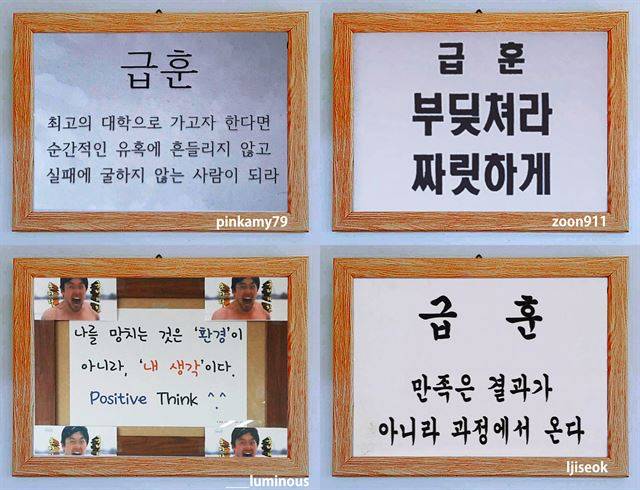 급훈
최고의 대학으로 가고자 한다면
순간적인 유혹에 흔들리지 않고
실패에 굴하지 않는 사람이 되라
pinkamy79
급 훈
부딪쳐라
짜릿하게
zoon911
나를 망치는 것은 '환경'이
아니라, '내 생각'이다.
Positive Think ^.^
___luminous
급 훈
만족은 결과가
아니라 과정에서 온다
ljiseok